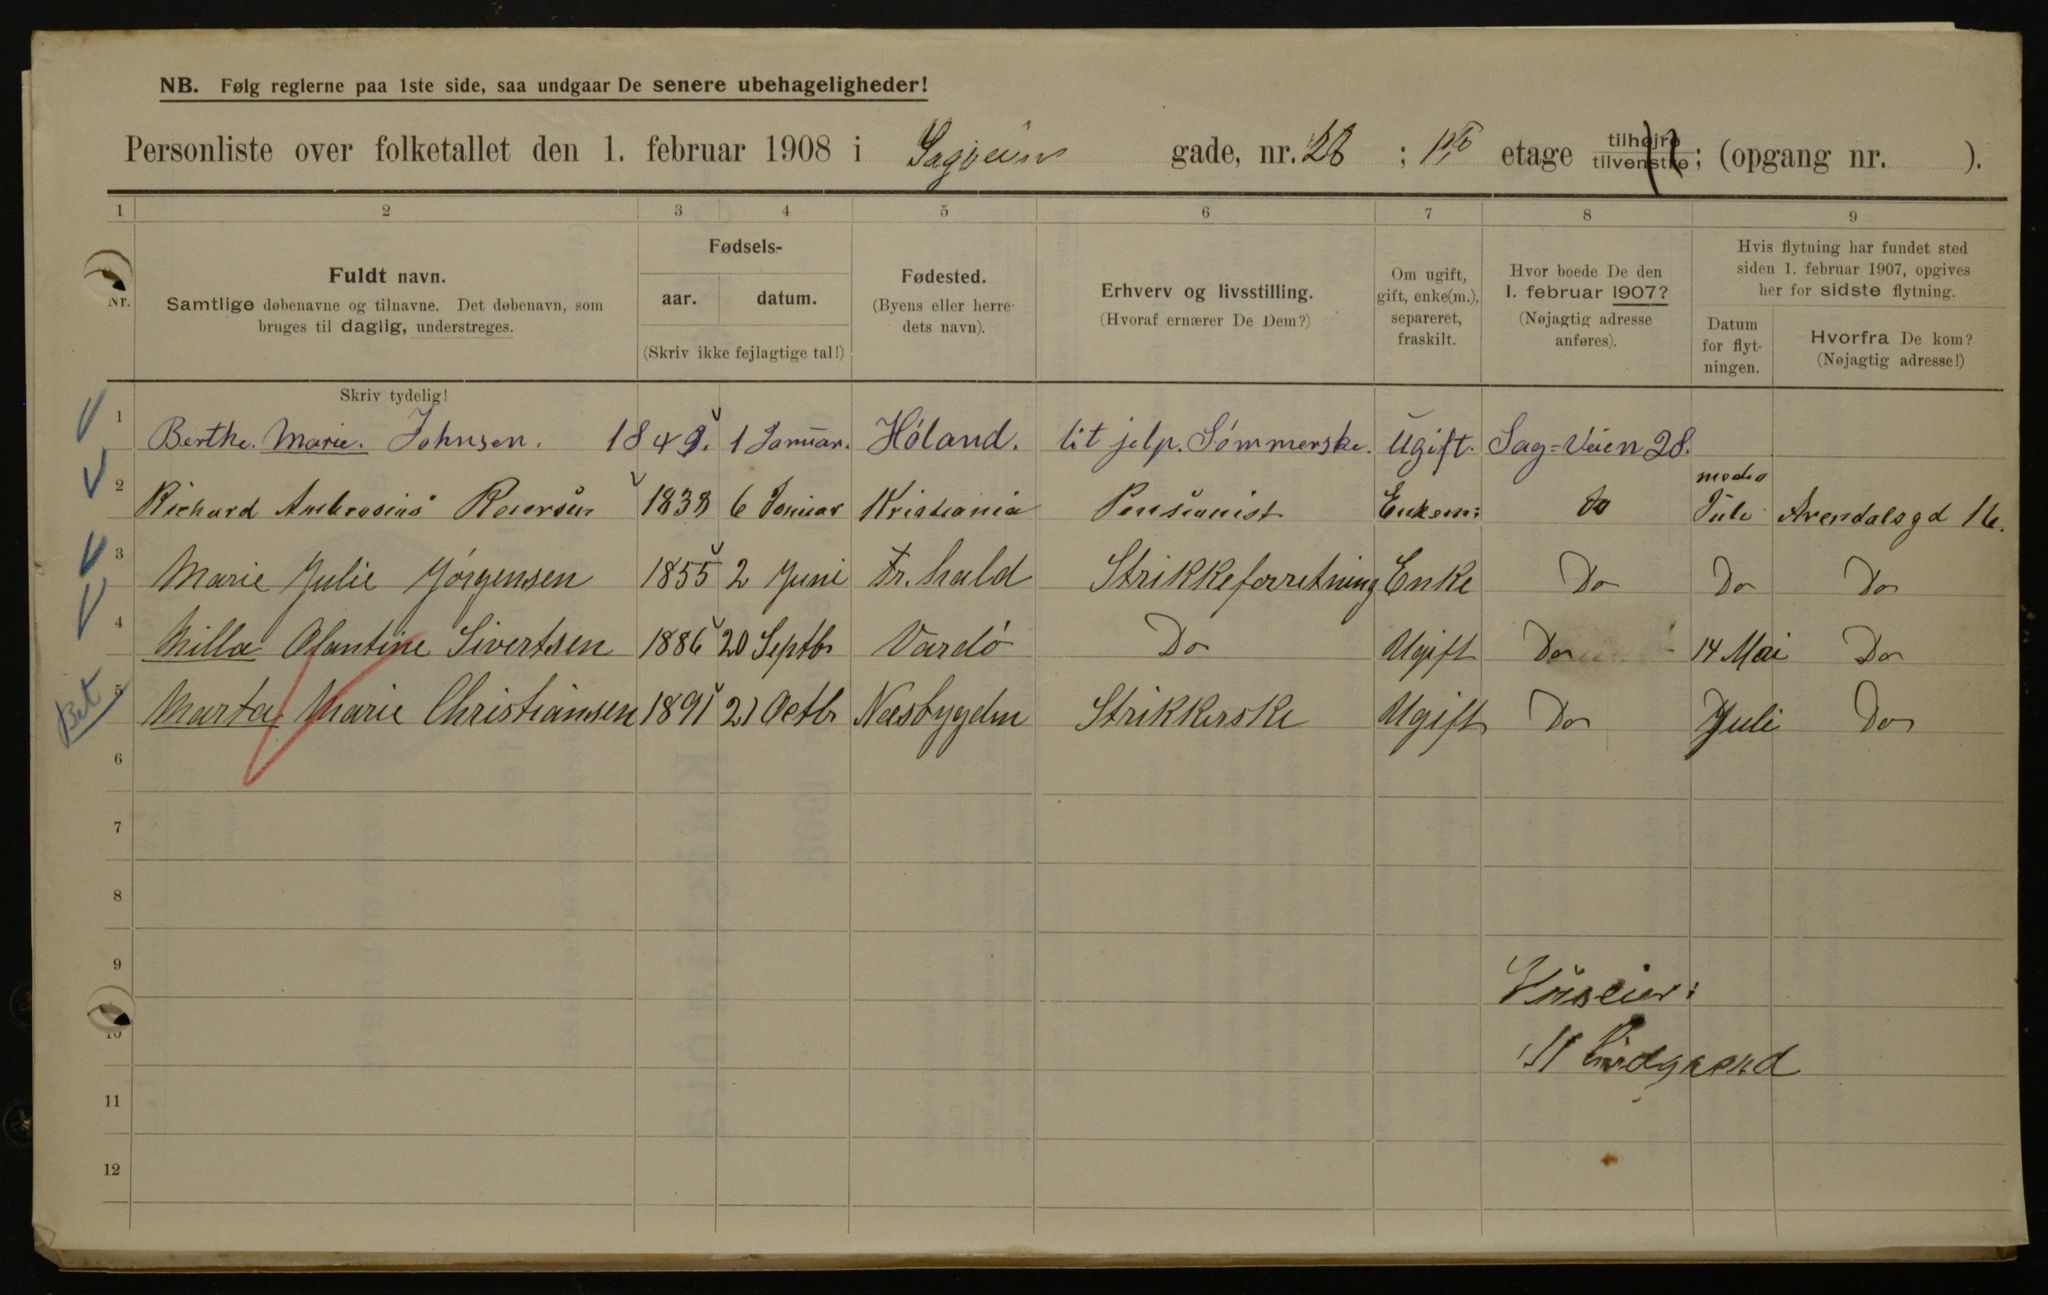 NB. Følg reglerne paa 1ste side, saa undgaar De senere ubehageligheder!
Personliste over folketallet den 1. februar 1908 i Sagveien gade, nr. 28 ; 1ste etage tilhøjre tilvenstre ; (opgang nr. ).
1 2 3 4 5 6 7 8 9
Nr.
Fuldt navn.
Samtlige døbenavne og tilnavne. Det døbenavn, som
bruges til daglig, understreges.
Fødsels-
aar. datum.
(Skriv ikke fejlagtige tal!)
Fødested.
(Byens eller herre-
dets navn).
Erhverv og livsstilling.
(Hvoraf ernærer De Dem?)
Om ugift,
gift, enke(m.),
separeret,
fraskilt.
Hvor boede De den
1. februar 1907?
(Nøjagtig adresse
anføres).
Hvis flytning har fundet sted
siden 1. februar 1907, opgives
her for sidste flytning.
Datum
for flyt-
ningen.
Hvorfra De kom?
(Nøjagtig adresse!)
Skriv tydelig!
1 Berthe. Marie. Johnsen. 1849. 1 Januar. Höland. lit jelp. Sömmerske. Ugift. Sag=Veien 28.
2 Richard Ambrosius 1838 6 Januar Kristiania Pensionist Enkem: do Juli Arendalsgd 16.
3 Marie Julie Jörgensen 1855 2 Juni Fr. hald Strikkeforretning Enke Do Do Do
4 Milla Olantine Sivertsen 1886 20 Septbr Vardö Do Ugift Do 14 Mai Do
Bet 5 Marta Marie Christiansen 1891 21 Octbr Næsbygden Strikkerske Ugift Do Juli Do
6
7
8
9
Huseier:
10
11
12